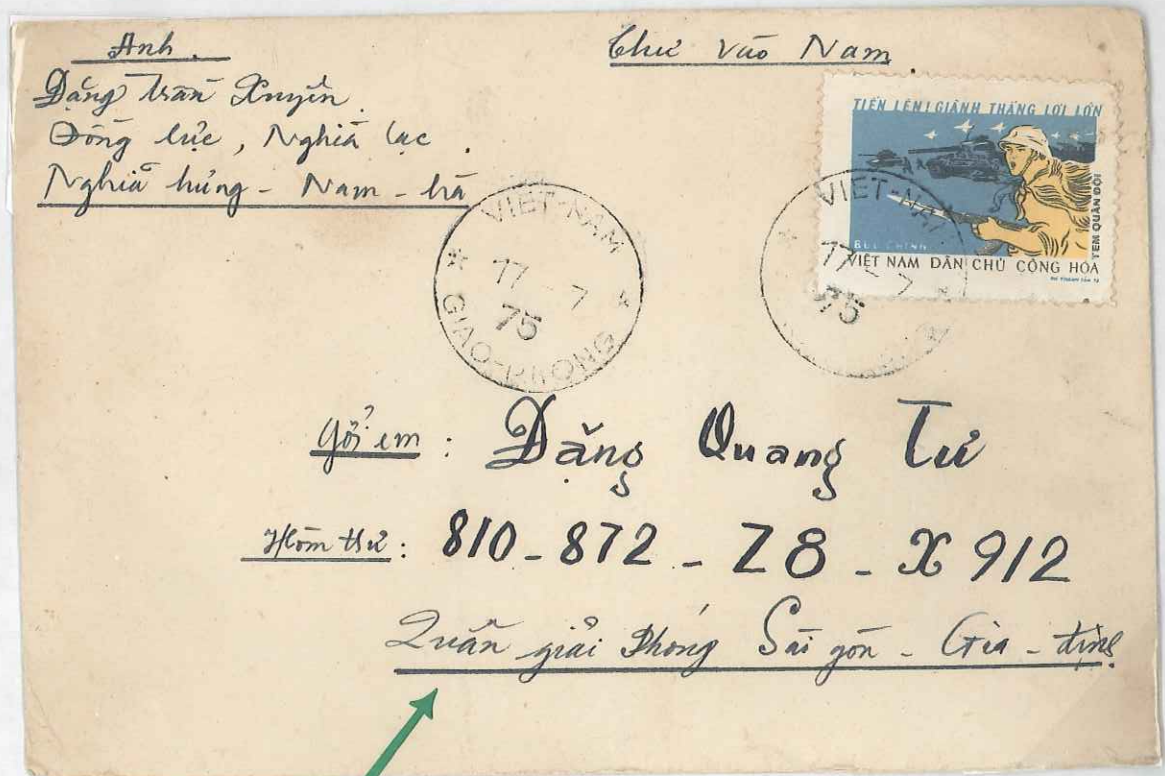 Anh.
Đặng Trần Xuyên
Đồng lực, Nghĩa lạc.
Nghĩa hưng - Nam - hà
Thư vào Nam
TIẾN LÊN! GIÀNH THẮNG LỢI LỚN
TEM QUÂN ĐỘI
BƯU CHÍNH
VIỆT NAM DÂN CHỦ CỘNG HÒA
VIET-NAM
17-7
75
GIAO-PHONG
VIET-NAM
17-7
75
Gởi em: Đặng Quang Tư
Hòm thư: 810-872-Z8-X912
Quân giải Phóng Sài gòn - Gia - định